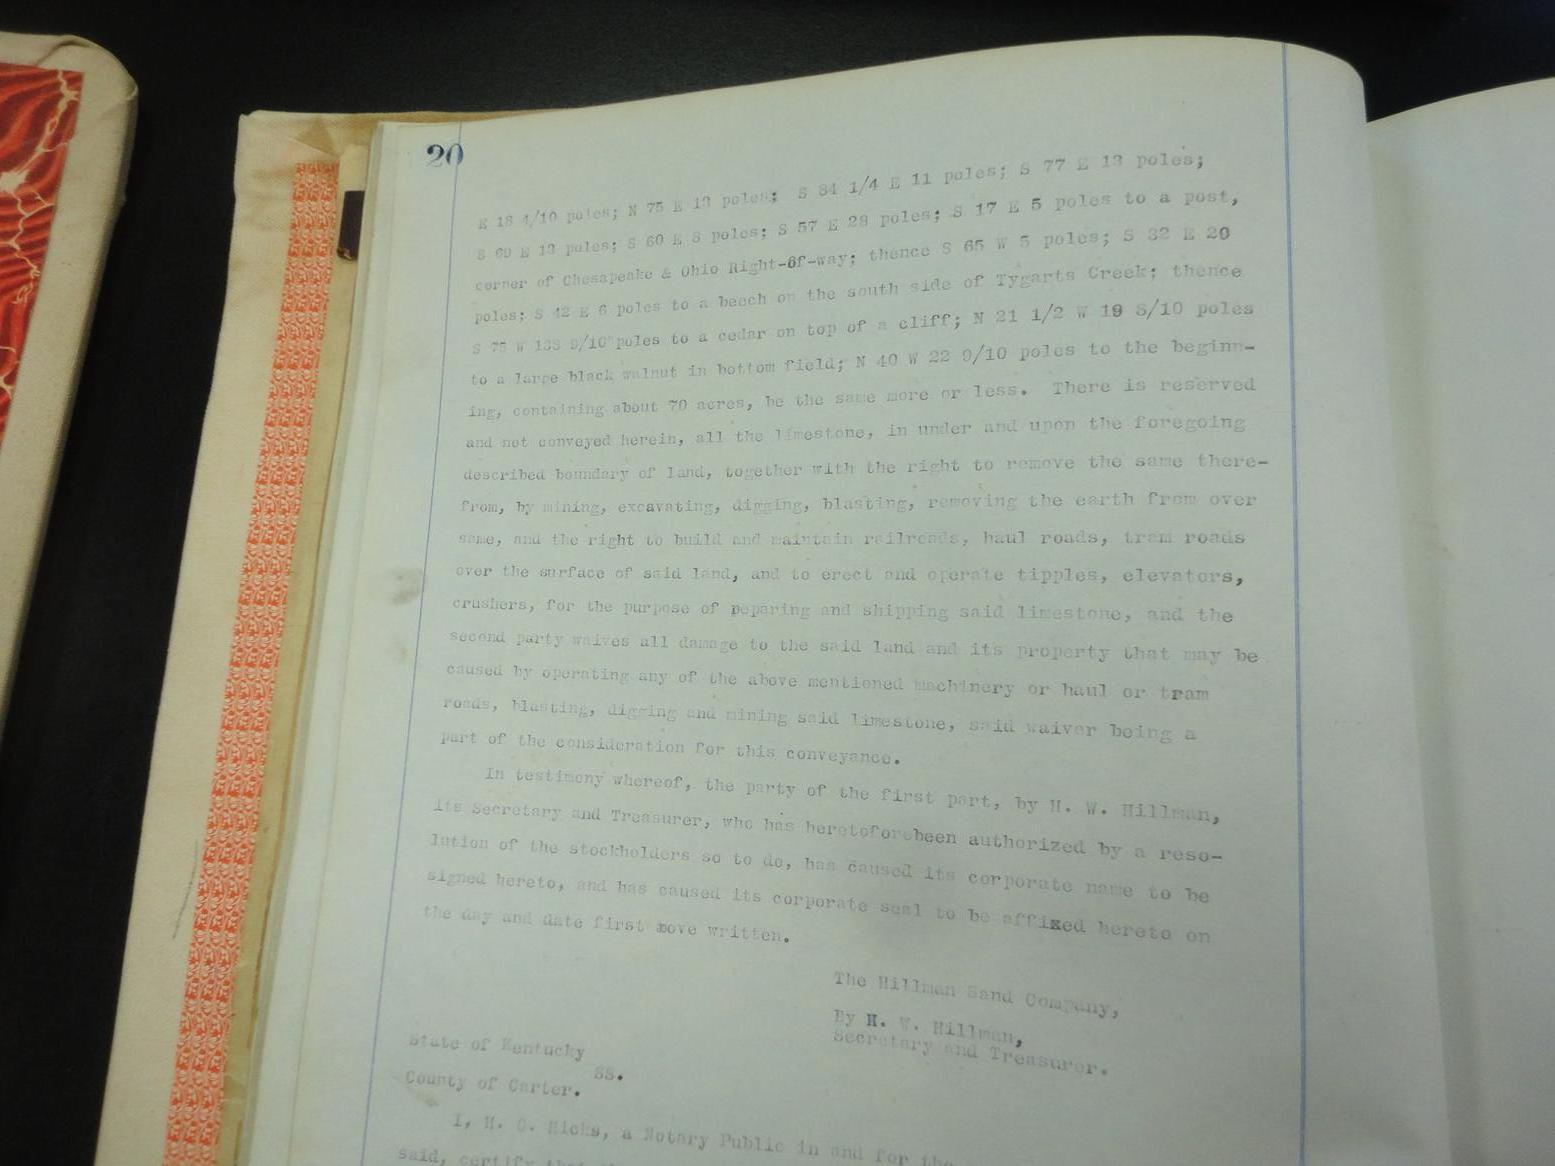 20
E 18 4/10 poles; N 75 E 13 poles; S 84 1/4 E 11 poles; S 77 E 13 poles;
S 69 E 13 poles; S 60 E 8 poles; S 57 E 28 poles; S 17 E 5 poles to a post,
corner of Chesapeake & Ohio Right-of-way; thence S 65 W 5 poles; S 32 E 20
poles; S 42 E 6 poles to a beech on the south side of Tygarts Creek; thence
S 75 W 138 9/10 poles to a cedar on top of a cliff; N 21 1/2 W 19 8/10 poles
to a large black walnut in bottom field; N 40 W 22 9/10 poles to the beginn-
ing, containing about 70 acres, be the same more or less. There is reserved
and not conveyed herein, all the limestone, in under and upon the foregoing
described boundary of land, together with the right to remove the same there-
from, by mining, excavating, digging, blasting, removing the earth from over
same, and the right to build and maintain railroads, haul roads, tram roads
over the surface of said land, and to erect and operate tipples, elevators,
crushers, for the purpose of peparing and shipping said limestone, and the
second party waives all damage to the said land and its property that may be
caused by operating any of the above mentioned machinery or haul or tram
roads, blasting, digging and mining said limestone, said waiver being a
part of the consideration for this conveyance.
In testimony whereof, the party of the first part, by H. W. Hillman,
its Secretary and Treasurer, who has heretoforebeen authorized by a reso-
lution of the stockholders so to do, has caused its corporate name to be
signed hereto, and has caused its corporate seal to be affixed hereto on
the day and date first above written.
The Hillman Sand Company,
By H. W. Hillman,
Secretary and Treasurer.
State of Kentucky
SS.
County of Carter.
I, H. C. Hicks, a Notary Public in and for the
said, certify that